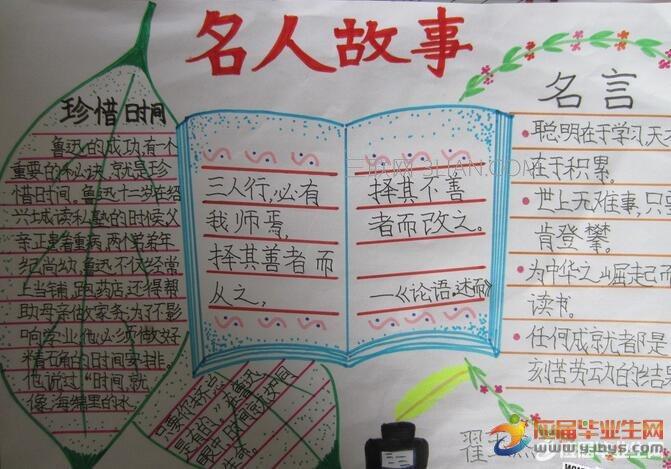 名人故事
珍惜时间
鲁迅的成功,有个
重要的秘诀,就是珍
惜时间。鲁迅十二岁在绍
兴城读私塾的时候,父
亲正患着重病,两个弟弟年
纪尚幼,鲁迅不仅经常
上当铺,跑药店,还得帮
助母亲做家务;为了不影
响学业,他必须做好
精确的时间安排。
他说过:"时间,就
像海绵里的水
三人行,必有
我师焉,
择其善者而
从之,
择其不善
者而改之。
—《论语·述而》
名言
聪明在于学习,天
在于积累。
世上无难事,只要
肯登攀。
为中华之崛起而
读书。
任何成就都是
刻苦劳动的结果
翟
应届毕业生网
www.yjbys.com